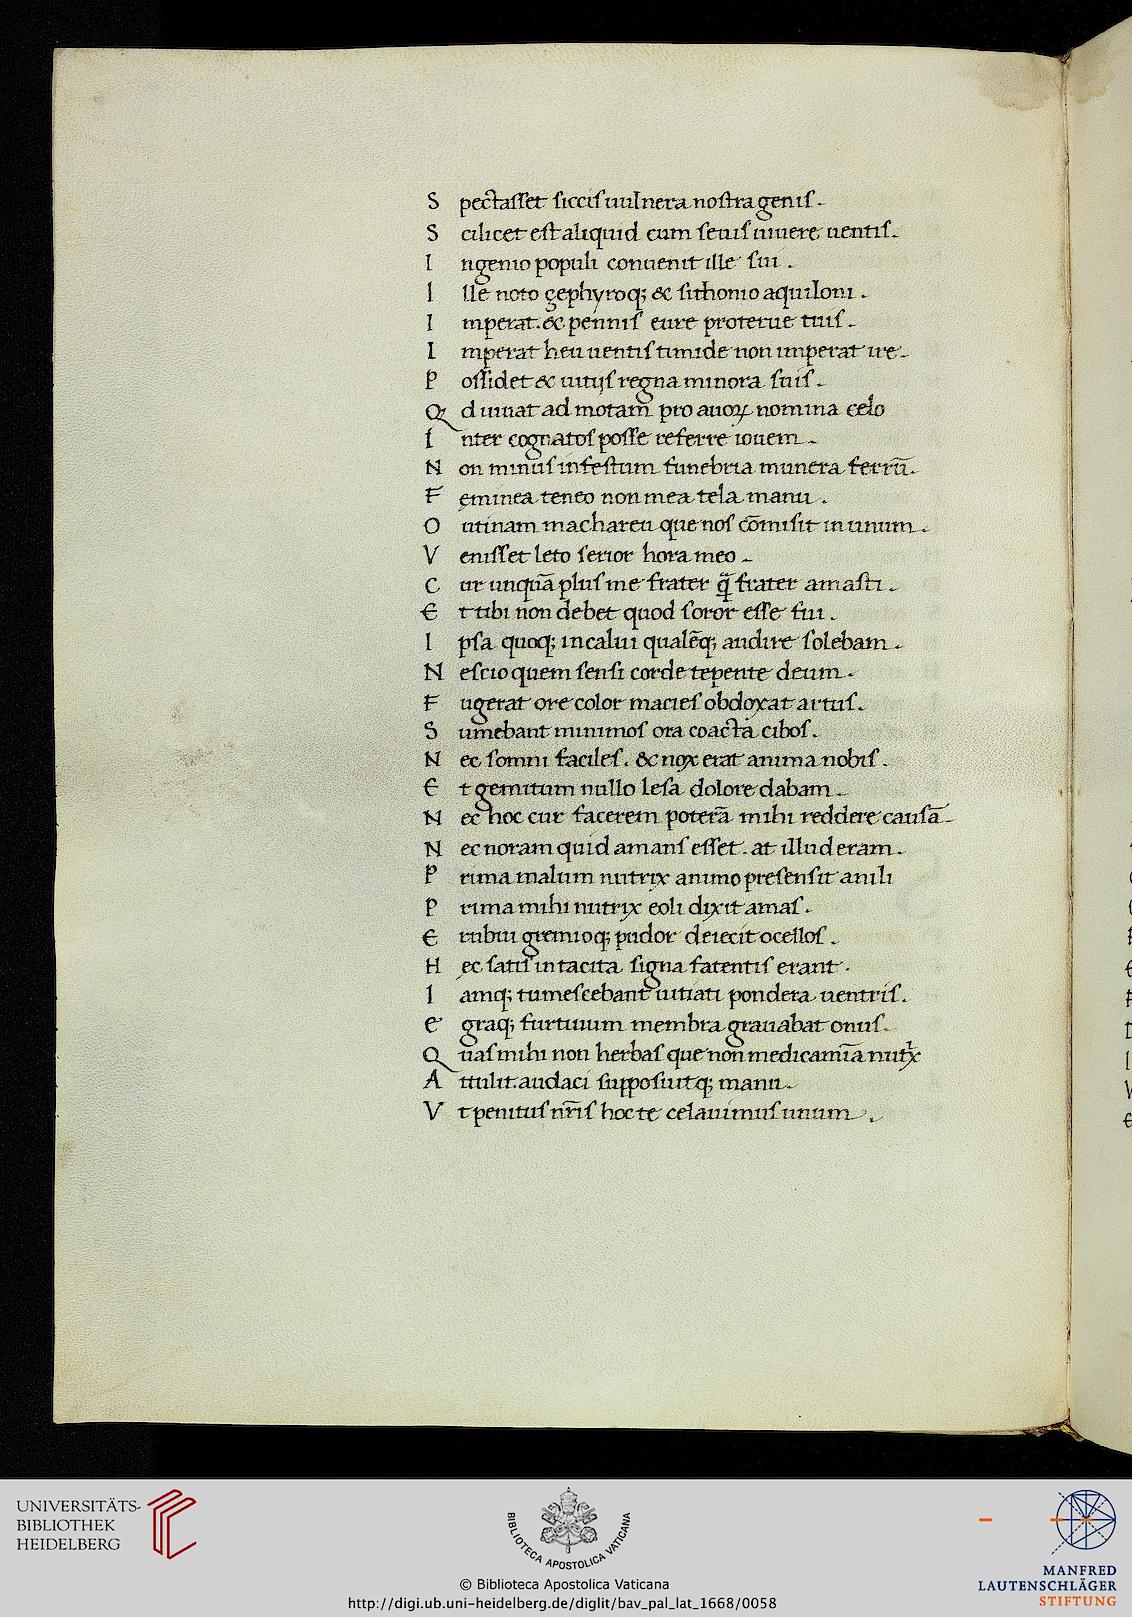 S pectasset siccis uulnera nostra genis.
S cilicet est aliquid cum seuis uiuere uentis.
I ngenio populi conuenit ille sui.
I lle noto zephyroq; & sithonio aquiloni.
I mperat. & pennis eure proterue tuis.
I mperat heu uentis timide non imperat ire.
P ossidet & uitijs regna minora suis.
Q d iuuat ad motam pro auoꝝ nomina celo
I nter cognatos posse referre iouem.
N on minus infestum funebria munera ferrū.
F eminea teneo non mea tela manu.
O utinam machareu que nos cōmisit in unum.
V enisset leto serior hora meo.
C ur unquā plus me frater q̄ frater amasti.
E t tibi non debet quod soror esse fui.
I psa quoq; incalui qualēq; audire solebam.
N escio quem sensi corde tepente deum.
F ugerat ore color macies obdoxat artus.
S umebant minimos ora coacta cibos.
N ec somni faciles. & nox erat anima nobis.
E t gemitum nullo lesa dolore dabam.
N ec hoc cur facerem poterā mihi reddere causā.
N ec noram quid amans esset. at illud eram.
P rima malum nutrix animo presensit anili
P rima mihi nutrix eoli dixit amas.
E rubui gremioq; pudor deiecit ocellos.
H ec satis in tacita signa fatentis erant.
I amq; tumescebant uitiati pondera uentris.
E graq; furtiuum membra grauabat onus.
Q uas mihi non herbas que non medicamīa nutx̄
A ttulit. audaci supposuitq; manu.
V t penitus nr̄is hoc te celauimus unum.
UNIVERSITÄTS-
BIBLIOTHEK
HEIDELBERG
BIBLIOTECA APOSTOLICA VATICANA
© Biblioteca Apostolica Vaticana
http://digi.ub.uni-heidelberg.de/diglit/bav_pal_lat_1668/0058
MANFRED
LAUTENSCHLÄGER
STIFTUNG